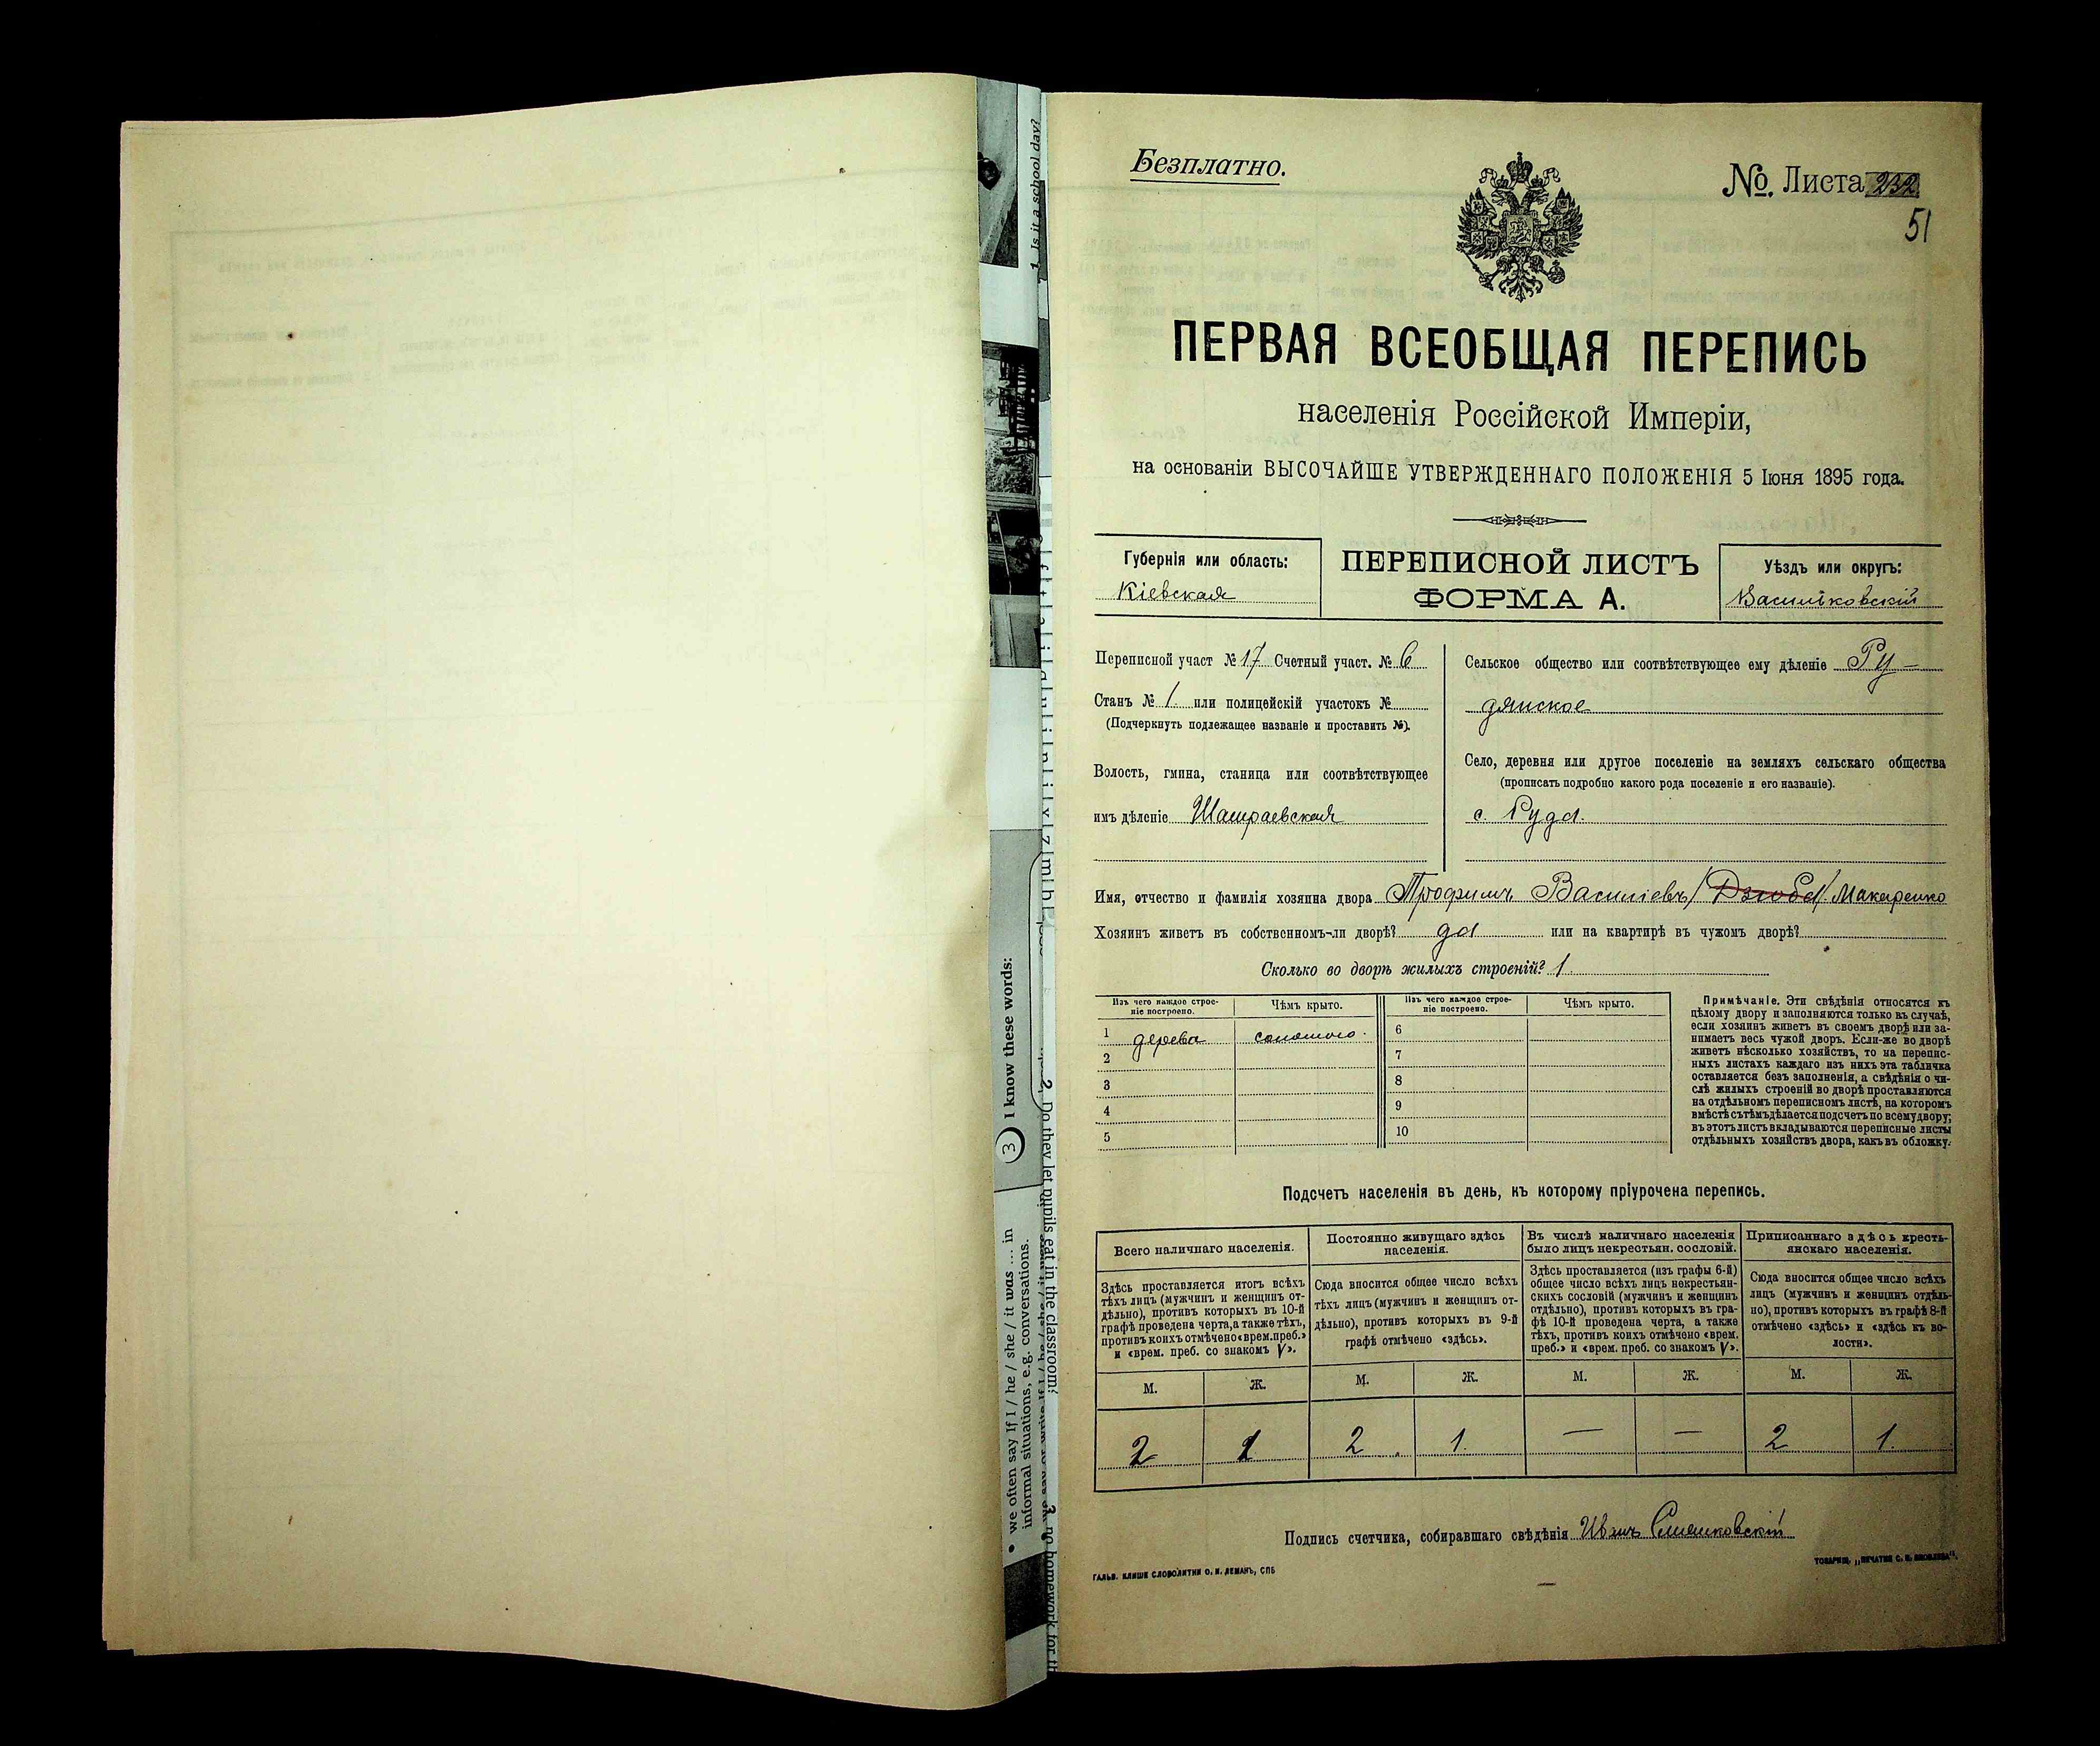 Безплатно.
№. Листа 232
51
ПЕРВАЯ ВСЕОБЩАЯ ПЕРЕПИСЬ
населенія Россійской Имперіи,
на основаніи ВЫСОЧАЙШЕ УТВЕРЖДЕННАГО ПОЛОЖЕНІЯ 5 Іюня 1895 года.
Губернія или область:
Кіевская
ПЕРЕПИСНОЙ ЛИСТЪ
ФОРМА А.
Уѣздъ или округъ:
Васильковскій
Переписной участ № 17 Счетный участ. № 6
Станъ № 1 или полицейскій участокъ №
(Подчеркнуть подлежащее названіе и проставить №).
Волость, гмина, станица или соотвѣтствующее
имъ дѣленіе Шамраевская
Сельское общество или соотвѣтствующее ему дѣленіе Ру-
дянское
Село, деревня или другое поселеніе на земляхъ сельскаго общества
(прописать подробно какого рода поселеніе и его названіе).
с. Руда.
Имя, отчество и фамилія хозяина двора Трофимъ Василіевъ Макаренко
Хозяинъ живетъ въ собственномъ-ли дворѣ? да или на квартирѣ въ чужомъ дворѣ?
Сколько во дворѣ жилыхъ строеній? 1.
Изъ чего каждое строе-
ніе построено.
Чѣмъ крыто.
Изъ чего каждое строе-
ніе построено.
Чѣмъ крыто.
1 дерева соломою. 6
2 7
3 8
4 9
5 10
Примѣчаніе. Эти свѣдѣнія относятся къ
цѣлому двору и заполняются только въ случаѣ,
если хозяинъ живетъ въ своемъ дворѣ или за-
нимаетъ весь чужой дворъ. Если-же во дворѣ
живетъ нѣсколько хозяйствъ, то на перепис-
ныхъ листахъ каждаго изъ нихъ эта табличка
оставляется безъ заполненія, а свѣдѣнія о чи-
слѣ жилыхъ строеній во дворѣ проставляются
на отдѣльномъ переписномъ листѣ, на которомъ
вмѣстѣ съ тѣмъ дѣлается подсчетъ по всему двору;
въ этотъ листъ вкладываются переписные листы
отдѣльныхъ хозяйствъ двора, какъ въ обложку.
Подсчетъ населенія въ день, къ которому пріурочена перепись.
Всего наличнаго населенія.
Здѣсь проставляется итогъ всѣхъ
тѣхъ лицъ (мужчинъ и женщинъ от-
дѣльно), противъ которыхъ въ 10-й
графѣ проведена черта, а также тѣхъ,
противъ коихъ отмѣчено «врем. преб.»
и «врем. преб. со знакомъ V».
Постоянно живущаго здѣсь
населенія.
Сюда вносится общее число всѣхъ
тѣхъ лицъ (мужчинъ и женщинъ от-
дѣльно), противъ которыхъ въ 9-й
графѣ отмѣчено «здѣсь».
Въ числѣ наличнаго населенія
было лицъ некрестьян. сословій.
Здѣсь проставляется (изъ графы 6-й)
общее число всѣхъ лицъ некрестьян-
скихъ сословій (мужчинъ и женщинъ
отдѣльно), противъ которыхъ въ гра-
фѣ 10-й проведена черта, а также
тѣхъ, противъ коихъ отмѣчено «врем.
преб.» и «врем. преб. со знакомъ V».
Приписаннаго здѣсь кресть-
янскаго населенія.
Сюда вносится общее число всѣхъ
лицъ (мужчинъ и женщинъ отдѣль-
но), противъ которыхъ въ графѣ 8-й
отмѣчено «здѣсь» и «здѣсь къ во-
лости».
М. Ж. М. Ж. М. Ж. М. Ж.
2 1 2 1. — — 2 1.
Подпись счетчика, собиравшаго свѣдѣнія
ГАЛЬВ. КЛИШЕ СЛОВОЛИТНИ О. И. ЛЕМАНЪ, СПБ
ТОВАРИЩ. „ПЕЧАТНЯ С. П. ЯКОВЛЕВА“.
1. Is it a school day?
3 I know these words:
2. Do they let pupils eat in the classroom?
• we often say If I / he / she / it was ... in
informal situations, e.g. conversations.
3. no homework for